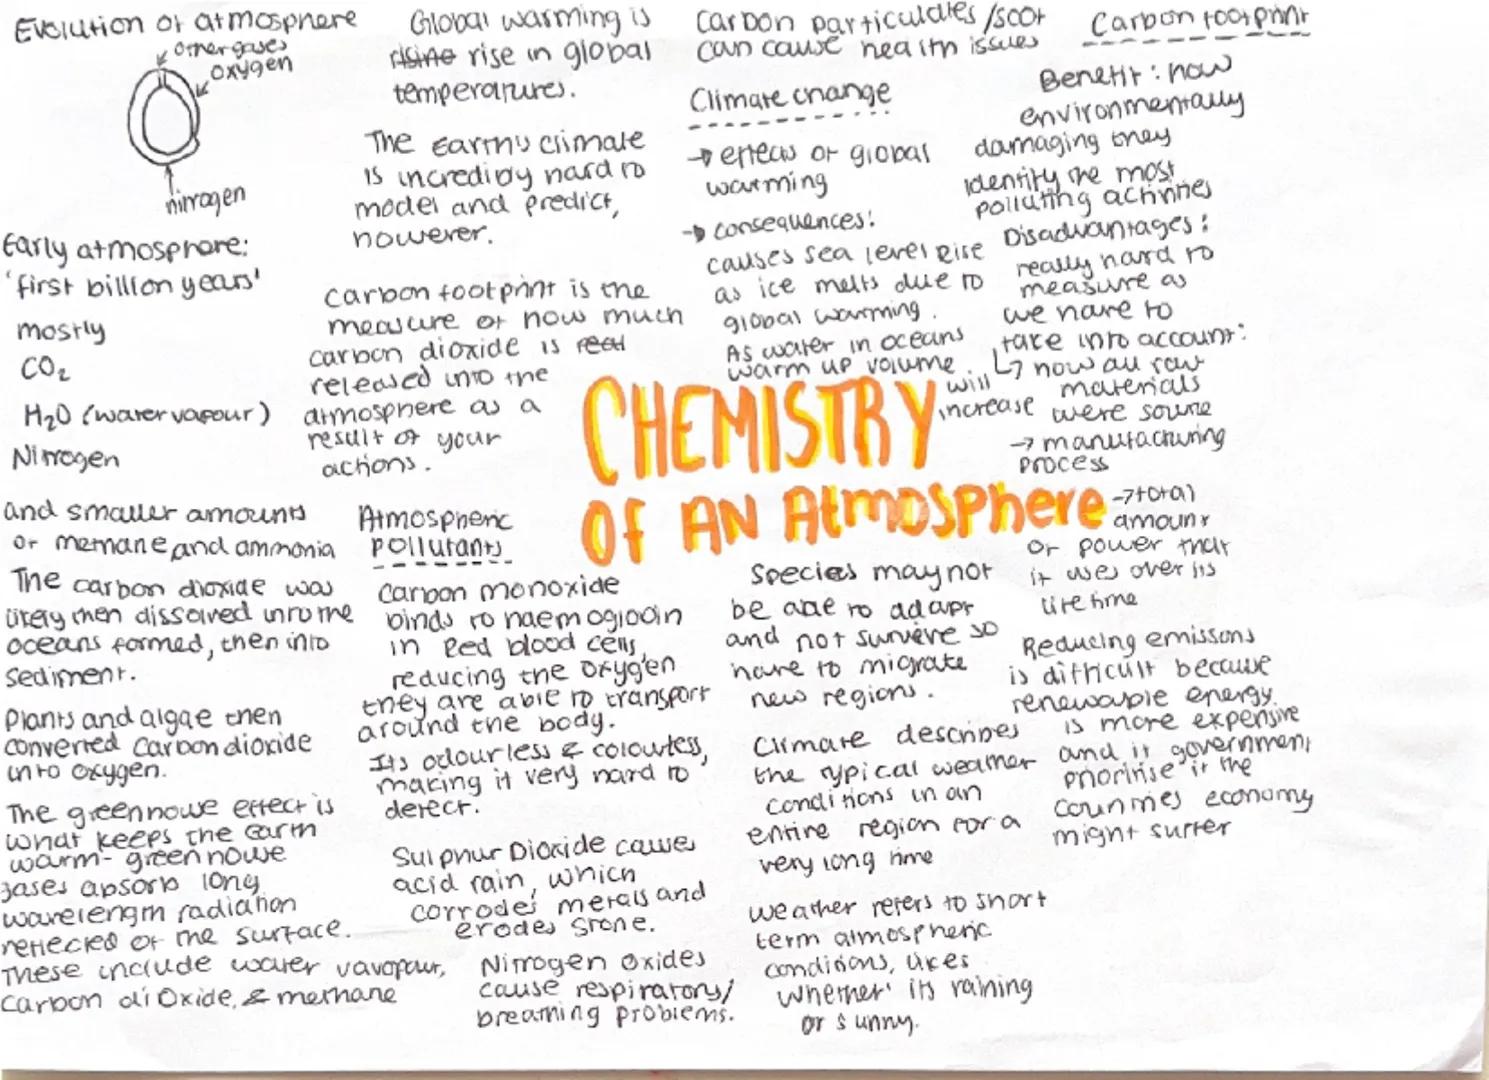 Evolution of atmosphere
other gases
oxygen
nitrogen
Early atmosphore:
'first billion years'
mostly
CO₂
H₂O (water vapour)
Nitrogen
and smaller amounts
of methane and ammonia
The carbon dioxide was
likely then dissolved into the
oceans formed, then into
sediment.
Plants and algae then
converted Carbon dioxide
into oxygen.
The greenhouse effect is
what keeps the Earth
warm - greenhouse
gases absorb long
wavelength radiation
reflected of the surface.
These include water vavopaur,
Carbon diOxide, & methane
Global warming is
rise in global
temperatures.
The Earths climate
is incredibly hard to
model and predict,
however.
Carbon footprint is the
measure of how much
carbon dioxide is
released into the
atmosphere as a
result of your
actions.
Atmospheric
pollutants
Carbon monoxide
binds to haemoglobin
in Red blood cells,
reducing the oxygen
they are able to transport
around the body.
Its odourless & colourless,
making it very hard to
detect.
Sulphur Dioxide causes
acid rain, which
corrodes metals and
erodes stone.
Nitrogen oxides
cause respiratory/
breathing problems.
Carbon particulates /soot
can cause health issues
Climate change
→ effects of global
warming
→ consequences:
causes sea level Rise
as ice melts due to
global warming.
As water in oceans
warm up volume
will
increase
CHEMISTRY
OF AN AtmosPhere
Species may not
be able to adapt
and not survive so
have to migrate
new regions.
Climate describes
the typical weather
conditions in an
entire region for a
very long time
weather refers to short
term atmospheric
conditions, likes
whether its raining
or sunny.
Carbon footprint
Benefit: how
environmentally
damaging they
identify the most
polluting activities
Disadvantages:
really hard to
measure as
we have to
take into account:
↳ how all raw
materials
were source
→ manufacturing
process
→ total
amount
of power that
it uses over its
lifetime
Reducing emissons
is difficult because
renewable energy
is more expensive
and it government
prioritise it the
countries economy
might suffer